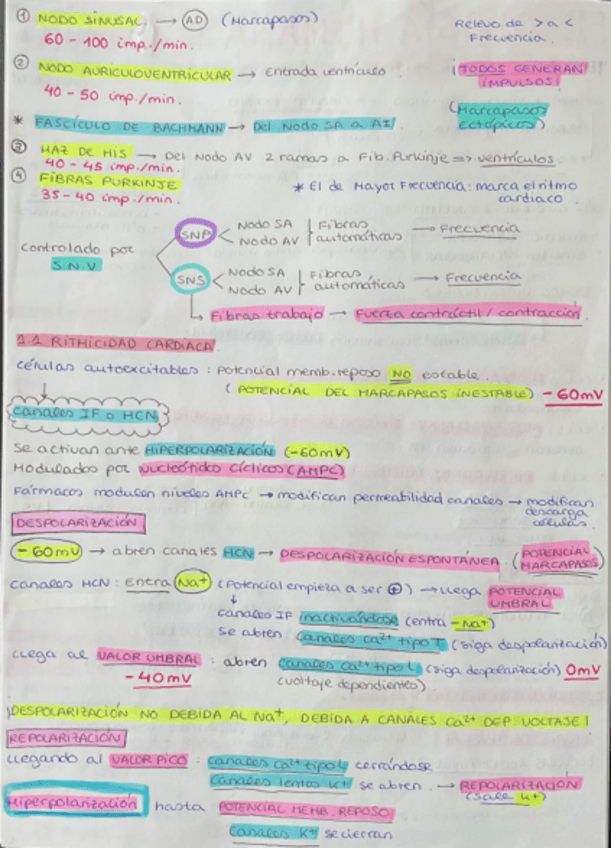 ① NODO SINUSAL → AD (Marcapasos)
60 - 100 imp./min.
Relevo de > a <
Frecuencia.
② NODO AURICULOVENTRICULAR → Entrada ventrículo.
40 - 50 imp./min.
¡TODOS GENERAN
IMPULSOS!
(Marcapasos
ectópicos)
* FASCÍCULO DE BACHMANN → Del Nodo SA a AI
③ HAZ DE HIS → Del Nodo AV 2 ramas a Fib. Purkinje => ventrículos
40 - 45 imp./min.
④ FIBRAS PURKINJE
35 - 40 imp./min.
* El de Mayor Frecuencia: marca el ritmo
cardiaco.
Controlado por
S.N.V
SNP < Nodo SA
Nodo AV
Fibras
automáticas → Frecuencia
SNS < Nodo SA
Nodo AV
Fibras
automáticas → Frecuencia
↳ Fibras trabajo → Fuerza contráctil / contracción.
1.1 RITMICIDAD CARDIACA.
Células autoexcitables: potencial memb. reposo NO estable.
(POTENCIAL DEL MARCAPASOS INESTABLE) - 60mV
Canales IF o HCN
Se activan ante HIPERPOLARIZACIÓN (-60mV)
Modulados por Nucleótidos Cíclicos (AMPc)
Fármacos modulen niveles AMPc → modifican permeabilidad canales → modifican
descarga
células.
DESPOLARIZACIÓN
-60mV → abren canales HCN → DESPOLARIZACIÓN ESPONTÁNEA. (POTENCIAL
MARCAPASOS)
Canales HCN: Entra Na+ (Potencial empieza a ser ⊕) → Llega POTENCIAL
UMBRAL
↓
canales IF inactivándose (entra - Na+)
se abren canales ca2+ tipo T (siga despolarización)
Llega al VALOR UMBRAL: abren canales Ca2+ tipo L (siga despolarización) 0mV
-40mV
(voltaje dependientes)
¡DESPOLARIZACIÓN NO DEBIDA AL Na+, DEBIDA A CANALES Ca2+ DEP VOLTAJE!
REPOLARIZACIÓN
Llegando al VALOR PICO: canales Ca2+ tipo L cerrándose
canales lentos K+ se abren. → REPOLARIZACIÓN
(Sale K+)
Hiperpolarización hasta POTENCIAL MEMB. REPOSO
Canales K+ se cierran